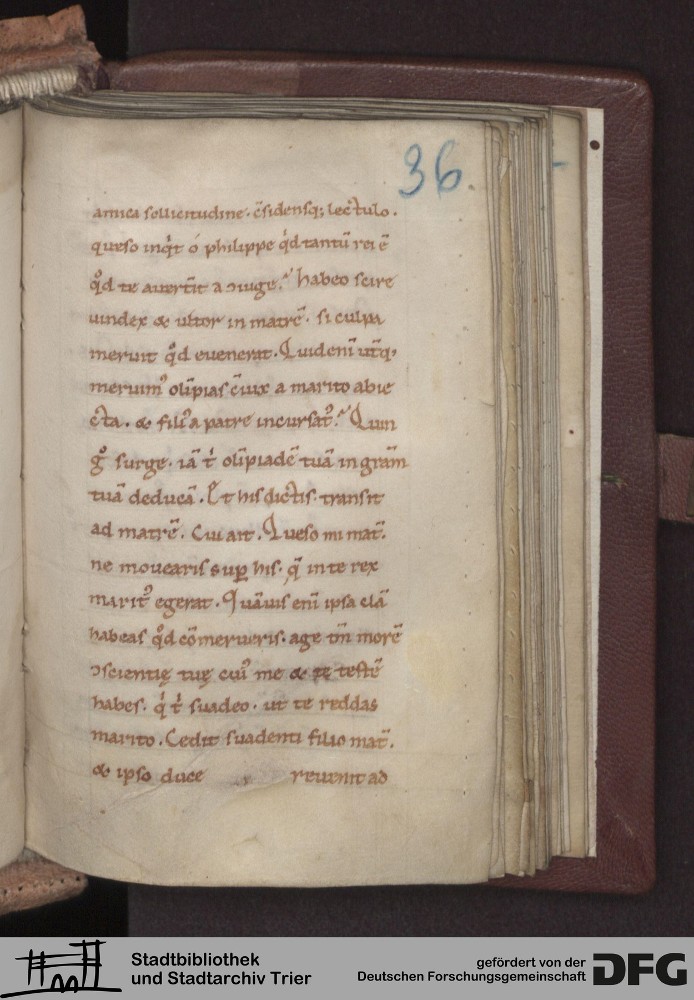 36
amica sollicitudine. c̄sidensq; lec̄tulo.
queso inq̇t ó philippe q̇d tantū rei ē
qͦd te auert̄it a ɔiuge. habeo scire
uindex & ultor in matrē. si culpa
meruit qͦd euenerat. Quidenī utq̨
meruim᾽ olīpias c̄iux a marito abie
cta. & fili᾽ a patre incursat᾽. Qum
gͦ surge. iā t̄ olīpiadē tuā in grām
tuā deducā. Et his dictis. transit
ad matrē. Cui ait. Queso mi mat̄.
ne mouearis sup̱ his. q̄ in te rex
marit᾽ egerat. Quāuis enī ipsa clā
habeas qͦd cōmerueris. age tn̄ morē
ɔscientię tuę cui᾽ me & te testē
habes. q̇ t̄ suadeo. ut te reddas
marito. Cedit suadenti filio mat̄.
& ipso duce reuenit ad
Stadtbibliothek
und Stadtarchiv Trier
gefördert von der
Deutschen Forschungsgemeinschaft
DFG